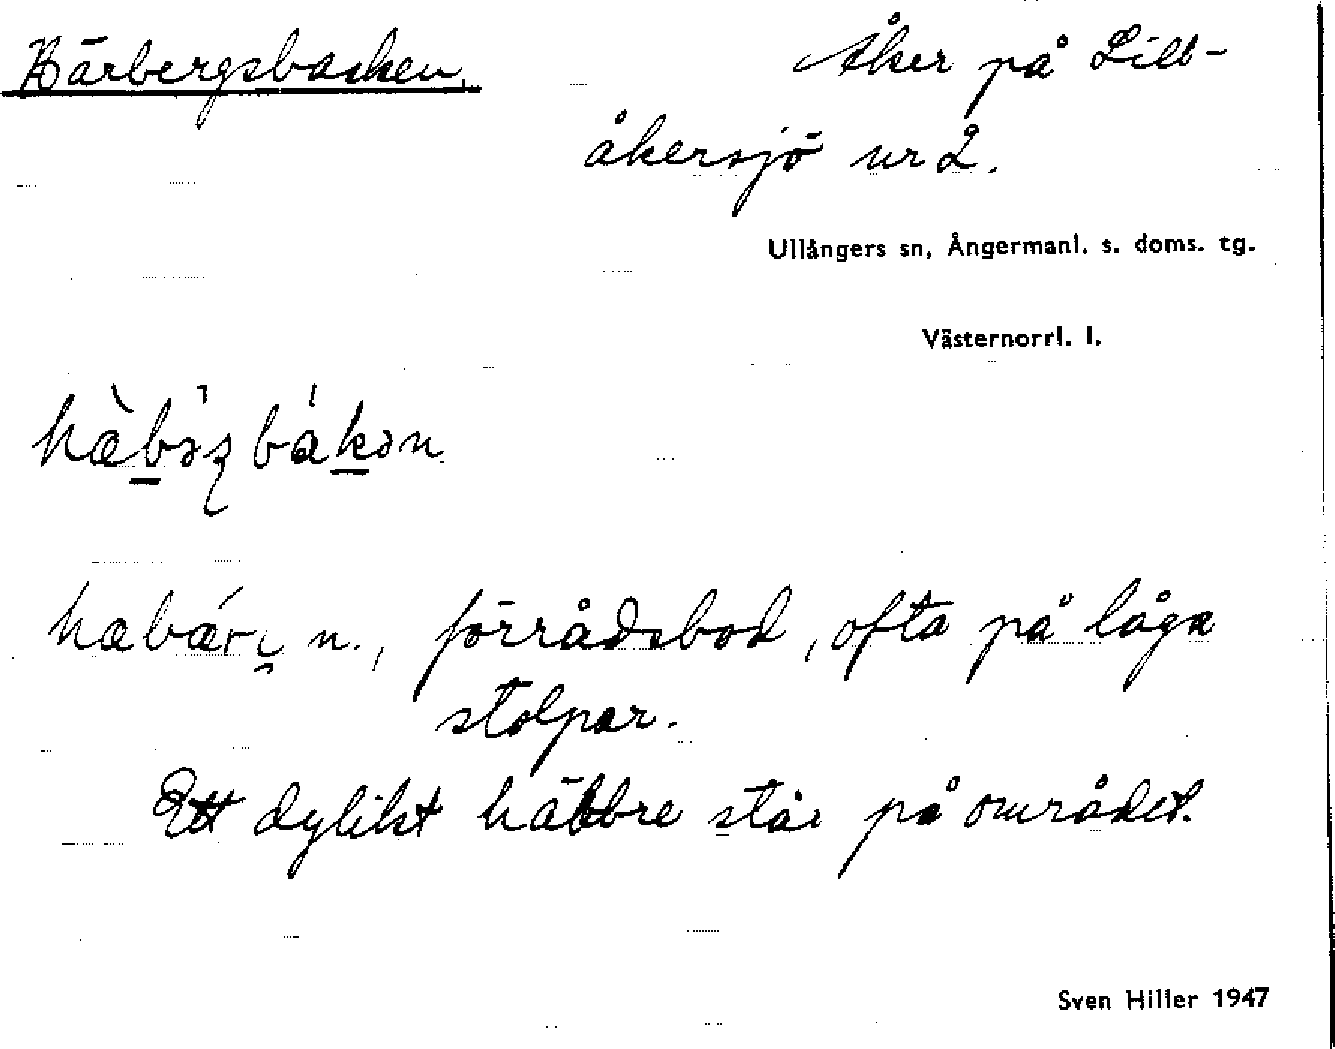 Härbergsbacken. Åker på Lill-
åkersjö nr 2.
Ullångers sn, Ångermanl. s. doms. tg.
Västernorrl. l.
hæ̀bə̀ʒbákən
hæbǽrı̣ n., förrådsbod, ofta på låga
stolpar.
Ett dylikt häbbre står på området.
Sven Hiller 1947